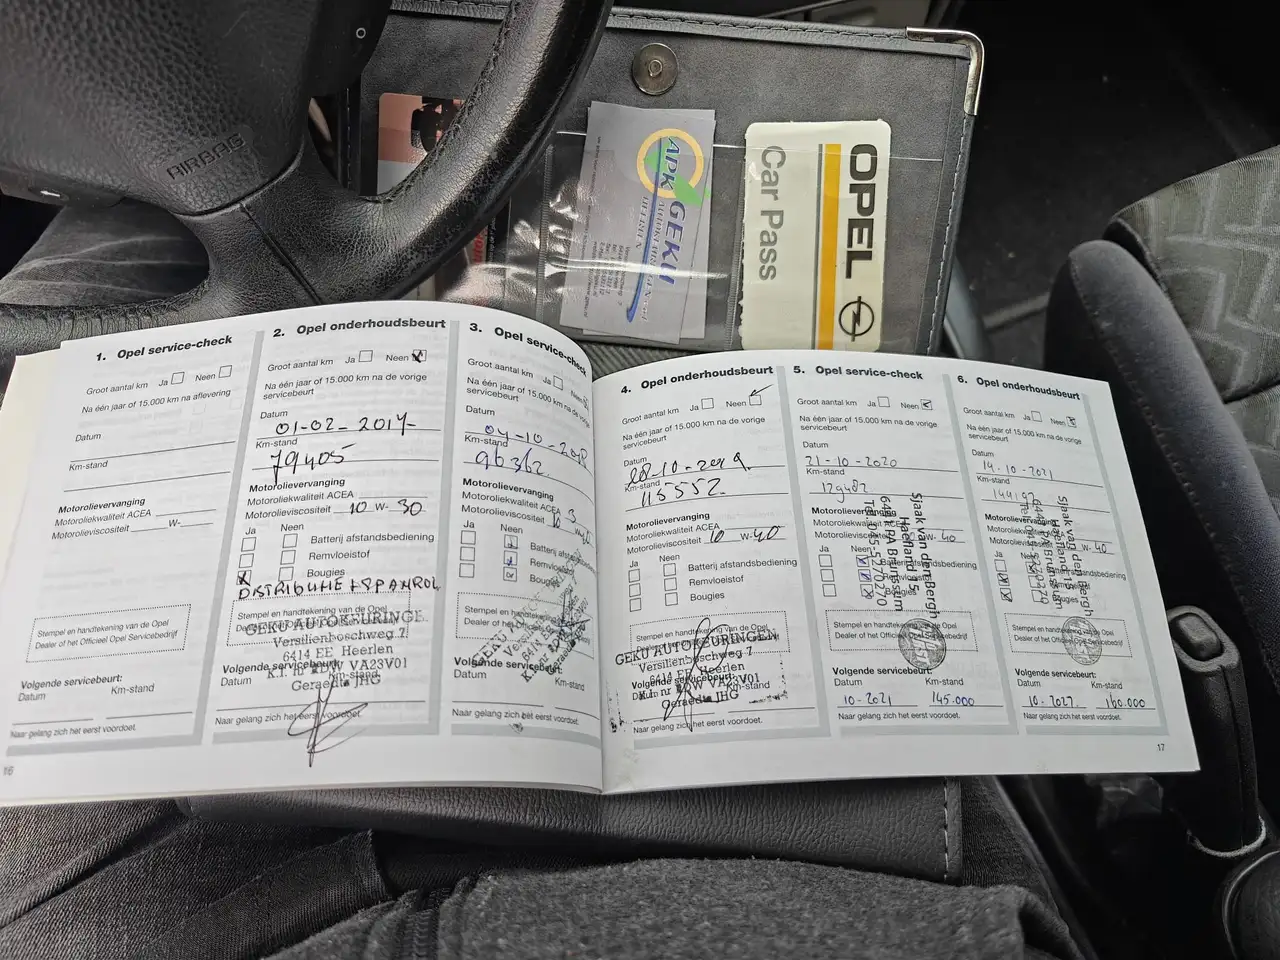 AIRBAG
APK
GEKU
OPEL
Car Pass
1. Opel service-check
Groot aantal km Ja Neen
Na één jaar of 15.000 km na aflevering
Datum
Km-stand
Motorolievervanging
Motoroliekwaliteit ACEA
Motorolieviscositeit W-
Ja Neen
Stempel en handtekening van de Opel
Dealer of het Officieel Opel Servicebedrijf
Volgende servicebeurt:
Datum Km-stand
Naar gelang zich het eerst voordoet.
16
2. Opel onderhoudsbeurt
Groot aantal km Ja Neen
Na één jaar of 15.000 km na de vorige
servicebeurt
Datum
01-02-2017
Km-stand
79405
Motorolievervanging
Motoroliekwaliteit ACEA
Motorolieviscositeit 10 W- 30
Ja Neen
Batterij afstandsbediening
Remvloeistof
Bougies
DISTRIBUTIE + SPANROL
Stempel en handtekening van de Opel
Dealer of het Officieel Opel Servicebedrijf
GEKU AUTOKEURINGEN
Versiliënboschweg 7
6414 EE Heerlen
K.I. nr RDW VA23V01
Geraedts JHG
Volgende servicebeurt:
Datum Km-stand
Naar gelang zich het eerst voordoet.
3. Opel service-check
Groot aantal km Ja
Na één jaar of 15.000 km na de vorige
servicebeurt
Datum
04-10-2018
Km-stand
96362
Motorolievervanging
Motoroliekwaliteit ACEA
Motorolieviscositeit 10
Ja Neen
Batterij
Remvloeistof
Bougies
Stempel en handtekening van de Opel
Dealer of het Officieel Opel
Volgende servicebeurt:
Datum Km-stand
Naar gelang zich het eerst voordoet.
4. Opel onderhoudsbeurt
Groot aantal km Ja Neen
Na één jaar of 15.000 km na de vorige
servicebeurt
Datum
08-10-2019
Km-stand
115552
Motorolievervanging
Motoroliekwaliteit ACEA
Motorolieviscositeit 10 W-40
Ja Neen
Batterij afstandsbediening
Remvloeistof
Bougies
Stempel en handtekening van de Opel
GEKU AUTOKEURINGEN
Versiliënboschweg 7
6414 EE Heerlen
K.I. nr RDW VA23V01
Geraedts JHG
Volgende servicebeurt:
Datum Km-stand
Naar gelang zich het eerst voordoet.
5. Opel service-check
Groot aantal km Ja Neen
Na één jaar of 15.000 km na de vorige
servicebeurt
Datum
21-10-2020
Km-stand
129482
Motorolievervanging
Motoroliekwaliteit ACEA
Motorolieviscositeit W- 40
Ja Neen
Batterij afstandsbediening
Remvloeistof
Bougies
Sjaak van den Bergh
Haefland 15
Brunssum
Tel. 045-5270270
Stempel en handtekening van de Opel
Dealer of het Officieel Opel Servicebedrijf
Volgende servicebeurt:
Datum Km-stand
10-2021 145.000
Naar gelang zich het eerst voordoet.
6. Opel onderhoudsbeurt
Groot aantal km Ja Neen
Na één jaar of 15.000 km na de vorige
servicebeurt
Datum
14-10-2021
Km-stand
144197
Motorolievervanging
Motoroliekwaliteit ACEA
Motorolieviscositeit W- 40
Ja Neen
Batterij afstandsbediening
Remvloeistof
Bougies
Sjaak van den Bergh
Haefland 15
Brunssum
Stempel en handtekening van de Opel
Dealer of het Officieel Opel Servicebedrijf
Volgende servicebeurt:
Datum Km-stand
10-2022 160.000
Naar gelang zich het eerst voordoet.
17